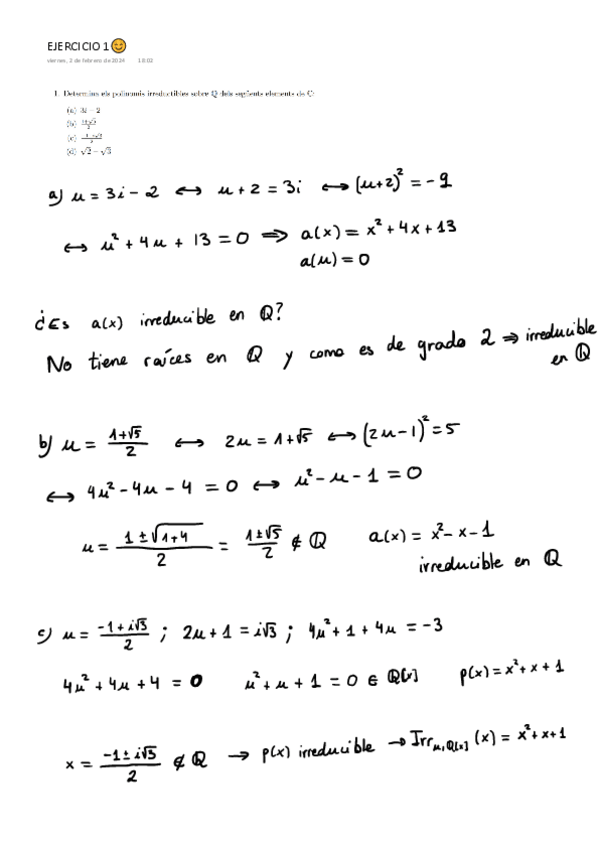 EJERCICIO 1 😊
viernes, 2 de febrero de 2024 18:02
1. Determina els polinomis irreductibles sobre Q dels següents elements de C:
(a) 3i − 2
(b) (1+√5)/2
(c) (−1+i√3)/2
(d) √2 − √3
a) u = 3i − 2 ↔ u + 2 = 3i ↔ (u+2)² = −9
↔ u² + 4u + 13 = 0 ⇒ a(x) = x² + 4x + 13
a(u) = 0
¿Es a(x) irreducible en Q?
No tiene raíces en Q y como es de grado 2 ⇒ irreducible
en Q
b) u = (1+√5)/2 ↔ 2u = 1+√5 ↔ (2u−1)² = 5
↔ 4u² − 4u − 4 = 0 ↔ u² − u − 1 = 0
u = (1 ± √(1+4))/2 = (1±√5)/2 ∉ Q a(x) = x² − x − 1
irreducible en Q
c) u = (−1+i√3)/2 ; 2u + 1 = i√3 ; 4u² + 1 + 4u = −3
4u² + 4u + 4 = 0 u² + u + 1 = 0 ∈ Q[x] p(x) = x² + x + 1
x = (−1 ± i√3)/2 ∉ Q → p(x) irreducible → Irr_{u,Q[x]} (x) = x² + x + 1